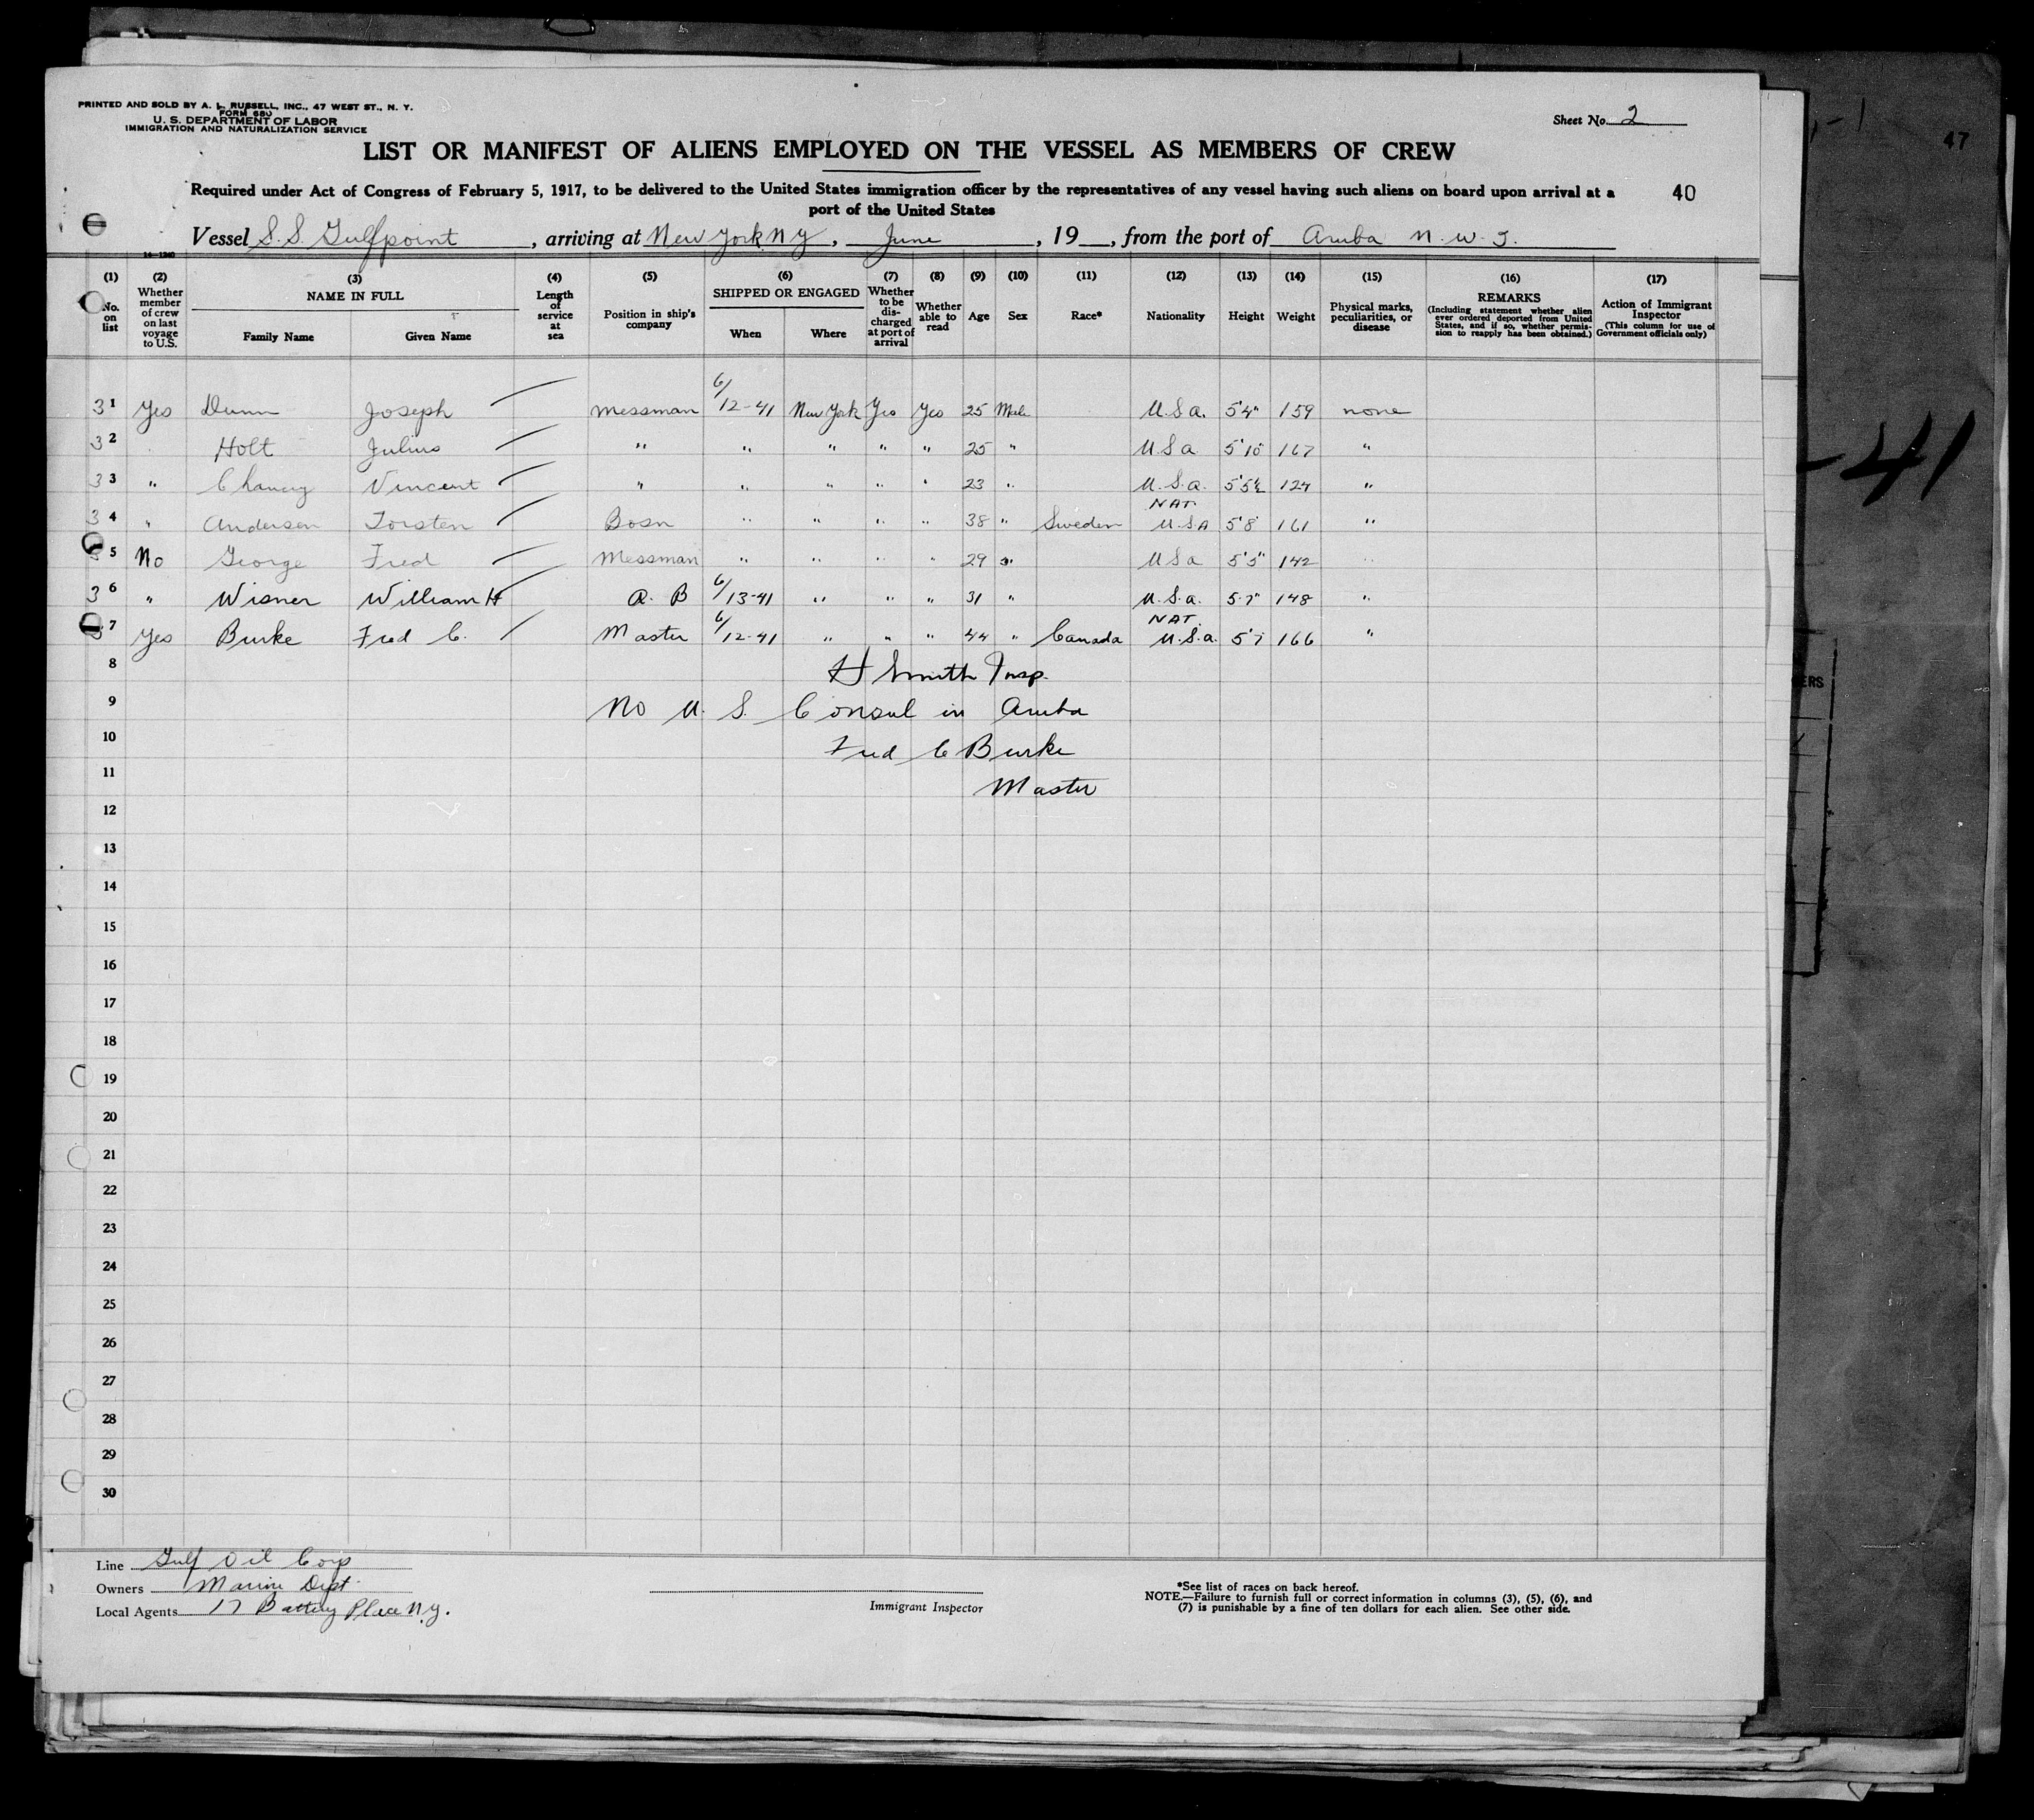 PRINTED AND SOLD BY A. L. RUSSELL, INC., 47 WEST ST., N. Y.
FORM 680
U. S. DEPARTMENT OF LABOR
IMMIGRATION AND NATURALIZATION SERVICE
Sheet No. 2
47
LIST OR MANIFEST OF ALIENS EMPLOYED ON THE VESSEL AS MEMBERS OF CREW
Required under Act of Congress of February 5, 1917, to be delivered to the United States immigration officer by the representatives of any vessel having such aliens on board upon arrival at a
port of the United States
40
Vessel S.S. Gulfpoint, arriving at New York N Y, June, 19__, from the port of Aruba N. W. I.
(1) No. on list
(2) Whether member of crew on last voyage to U.S.
(3) NAME IN FULL Family Name Given Name
(4) Length of service at sea
(5) Position in ship's company
(6) SHIPPED OR ENGAGED When Where
(7) Whether to be discharged at port of arrival
(8) Whether able to read
(9) Age
(10) Sex
(11) Race*
(12) Nationality
(13) Height
(14) Weight
(15) Physical marks, peculiarities, or disease
(16) REMARKS (Including statement whether alien ever ordered deported from United States, and if so, whether permission to reapply has been obtained.)
(17) Action of Immigrant Inspector (This column for use of Government officials only)
31 Yes Dunn Joseph Messman 6/12-41 New York Yes Yes 25 Male U.S.a. 5'4" 159 none
32 Holt Julius " " " " " 25 " U.S.a 5'10 167 "
33 " Chancy Vincent " " " " " 23 " U.S.a. 5'5½ 124 "
34 " Andersen Torsten Bosn " " " " 38 " Sweden NAT. U.S.A 5'8 161 "
5 No George Fred Messman " " " " 29 " U S a 5'5" 142 "
36 " Wisner William H A. B 6/13-41 " " " 31 " U.S.a. 5-7" 148 "
7 Yes Burke Fred C. Master 6/12-41 " " " 44 " Canada NAT. U.S.a. 5'7 166 "
8 H Smith Insp.
9 No U. S. Consul in Aruba
10 Fred C Burke
11 Master
12
13
14
15
16
17
18
19
20
21
22
23
24
25
26
27
28
29
30
-41
Line Gulf Oil Corp
Owners Marine Dept.
Local Agents 17 Battery Place N.Y.
Immigrant Inspector
*See list of races on back hereof.
NOTE.—Failure to furnish full or correct information in columns (3), (5), (6), and
(7) is punishable by a fine of ten dollars for each alien. See other side.